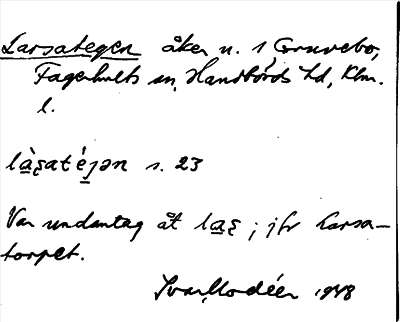 Larsategen åker n. 1 Gruvebo,
Fagerhults sn, Handbörds hd, Klm.
l.
là̱ʂaté̱jən s. 23
Var undantag åt la̱ʂ; jfr Larsa-
torpet.
Ivar Modéer 1948